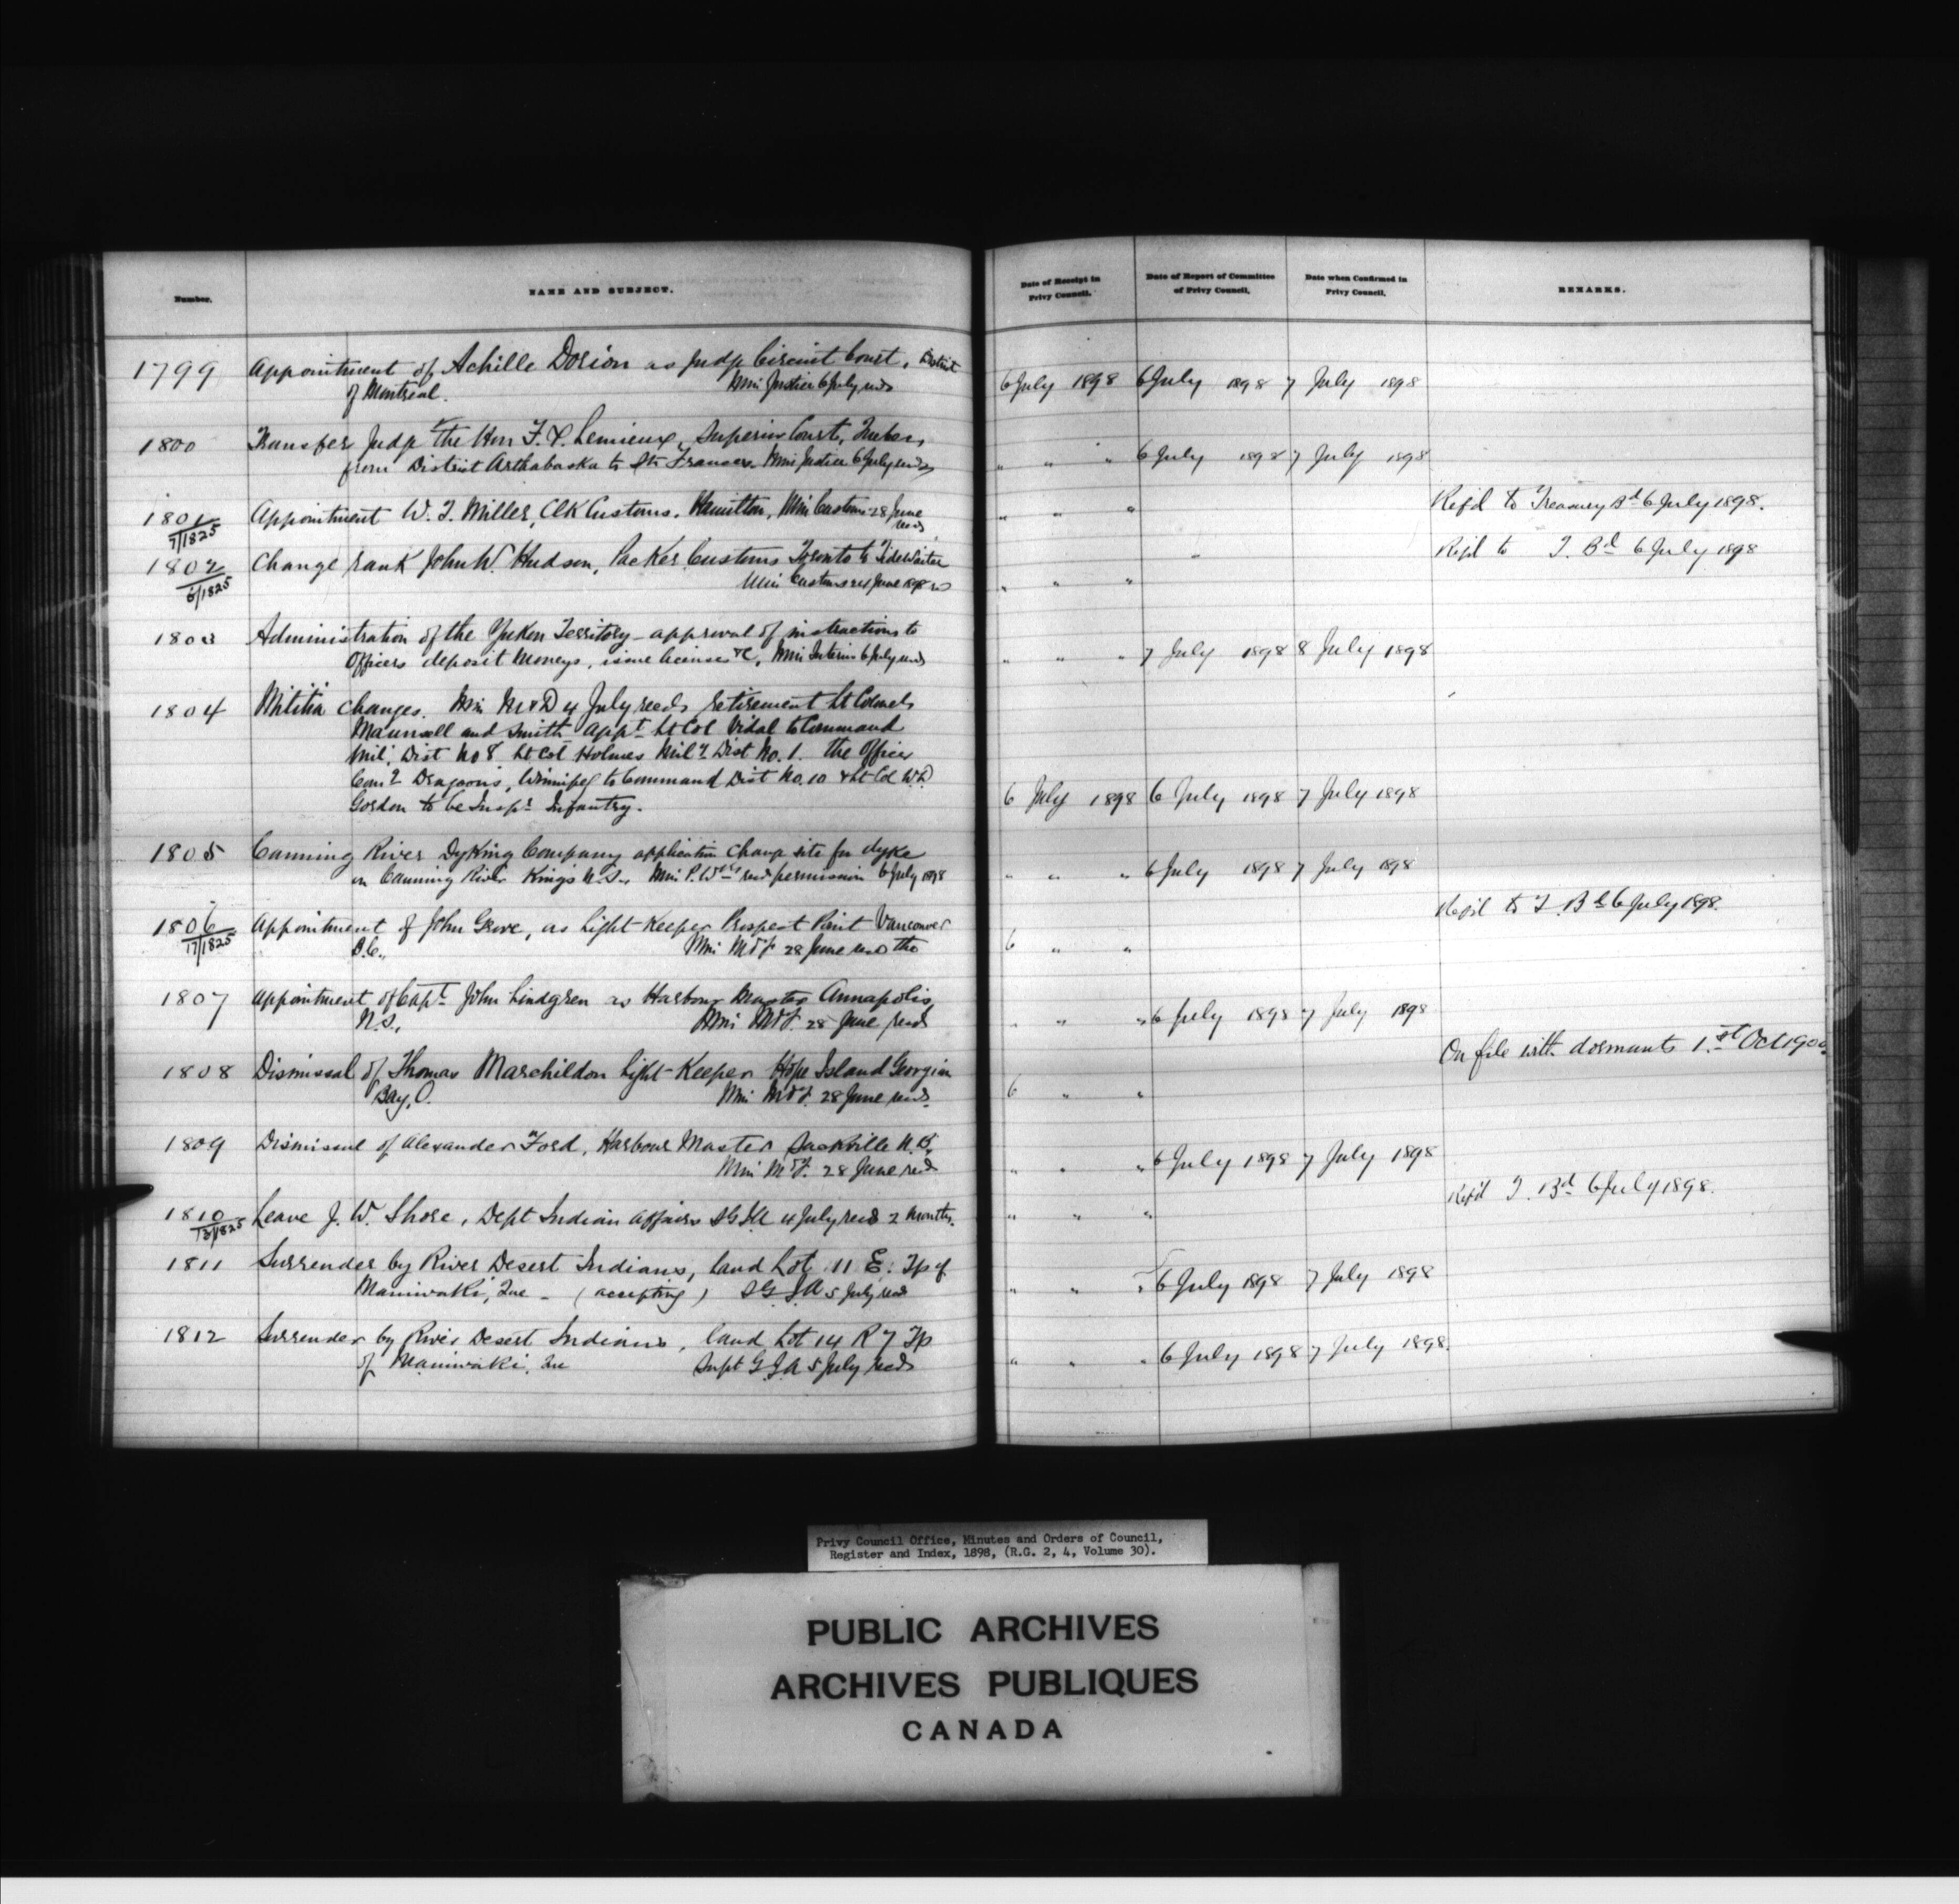 Number.
NAME AND SUBJECT.
Date of Receipt in
Privy Council.
Date of Report of Committee
of Privy Council.
Date when Confirmed in
Privy Council.
REMARKS.
1799 Appointment of Achille Dorion as Judge Circuit Court, District
of Montreal. Min Justice 6 July recds
6 July 1898 6 July 1898 7 July 1898
1800 Transfer Judge the Hon F. X. Lemieux, Superior Court, Quebec,
from District Arthabaska to St. Francis. Min Justice 6 July recds
" " " 6 July 1898 7 July 1898
1801 Appointment W. J. Miller, Clk Customs, Hamilton, Min Customs 28 June
7/1825 recds
" " " Ref'd to Treasury Bd 6 July 1898.
1802 Change rank John W. Hudson, Packer Customs Toronto to Tidewaiter
6/1825 Min Customs 24 June 1898
" " " Ref'd to T. Bd 6 July 1898
1803 Administration of the Yukon Territory - approval of instructions to
Officers deposit Moneys, issue licenses &c, Min Interior 6 July recds
" " " 7 July 1898 8 July 1898
1804 Militia Changes. Min M&D 4 July recds retirement Lt Colonels
Maunsell and Smith appt Lt Col Vidal to Command
Mil. Dist No 8 Lt Col Holmes Mily Dist No. 1. the Officer
Comg Dragoons, Winnipeg to Command Dist No. 10 & Lt Col W.D.
Gordon to be Inspr Infantry.
6 July 1898 6 July 1898 7 July 1898
1805 Canning River Dyking Company application change site for dyke
in Canning River Kings N.S., Min P. Wks recd permission 6 July 1898
" " " 6 July 1898 7 July 1898
1806 Appointment of John Grove, as Light-Keeper Prospect Point Vancouver
17/1825 B.C., Min M&F 28 June recds the
6 " " Ref'd to T. Bd 6 July 1898.
1807 Appointment of Capt. John Lindgren as Harbour Master Annapolis,
N.S., Min M&F. 28 June recds
" " " 6 July 1898 7 July 1898
1808 Dismissal of Thomas Marchildon Light-Keeper Hope Island Georgian
Bay, O. Min M&F. 28 June recds.
6 " " On file with dormants 1st Oct 1900
1809 Dismissal of Alexander Ford, Harbour Master Sackville N.B.,
Min M&F. 28 June recds
" " " 6 July 1898 7 July 1898
1810 Leave J. W. Shore, Dept Indian Affairs SGIA 4 July recds 2 Months.
13/1825
" " " Ref'd T. Bd 6 July 1898.
1811 Surrender by River Desert Indians, land Lot 11 E. Tp of
Maniwaki, Que - (accepting) SGIA 5 July recds
" " " 6 July 1898 7 July 1898
1812 Surrender by River Desert Indians, land Lot 14 R 7 Tp
of Maniwaki, Que Supt G.I.A 5 July recds
" " " 6 July 1898 7 July 1898.
Privy Council Office, Minutes and Orders of Council,
Register and Index, 1898, (R.G. 2, 4, Volume 30).
PUBLIC ARCHIVES
ARCHIVES PUBLIQUES
CANADA